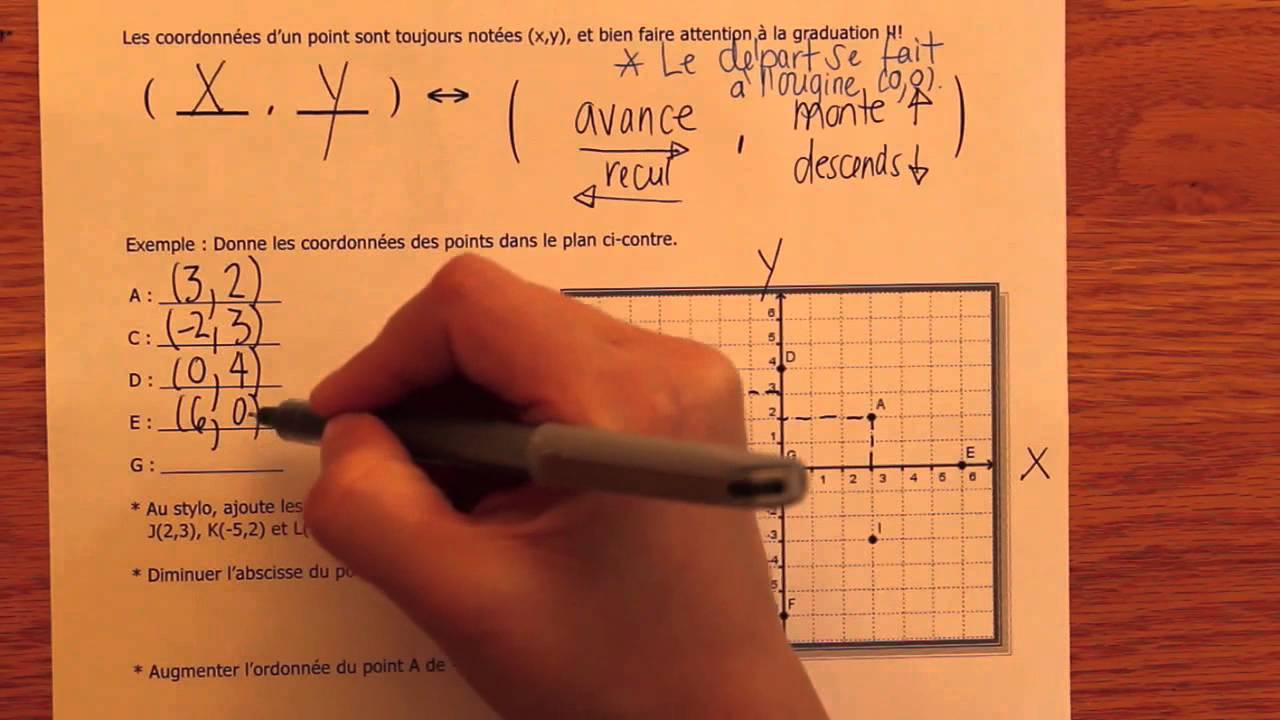 Les coordonnées d'un point sont toujours notées (x,y), et bien faire attention à la graduation !!!
* Le départ se fait
à l'origine (0,0).
( X , y ) ↔ ( avance → , monte ↑ )
recul ← descends ↓
Exemple : Donne les coordonnées des points dans le plan ci-contre.
A : (3, 2)
C : (-2, 3)
D : (0, 4)
E : (6, 0)
G :
* Au stylo, ajoute les
J(2,3), K(-5,2) et L(
* Diminuer l'abscisse du
* Augmenter l'ordonnée du point A de
y
6
5
4 D
3
2 A
1
G E
1 2 3 4 5 6
X
-3 I
-4
5
F